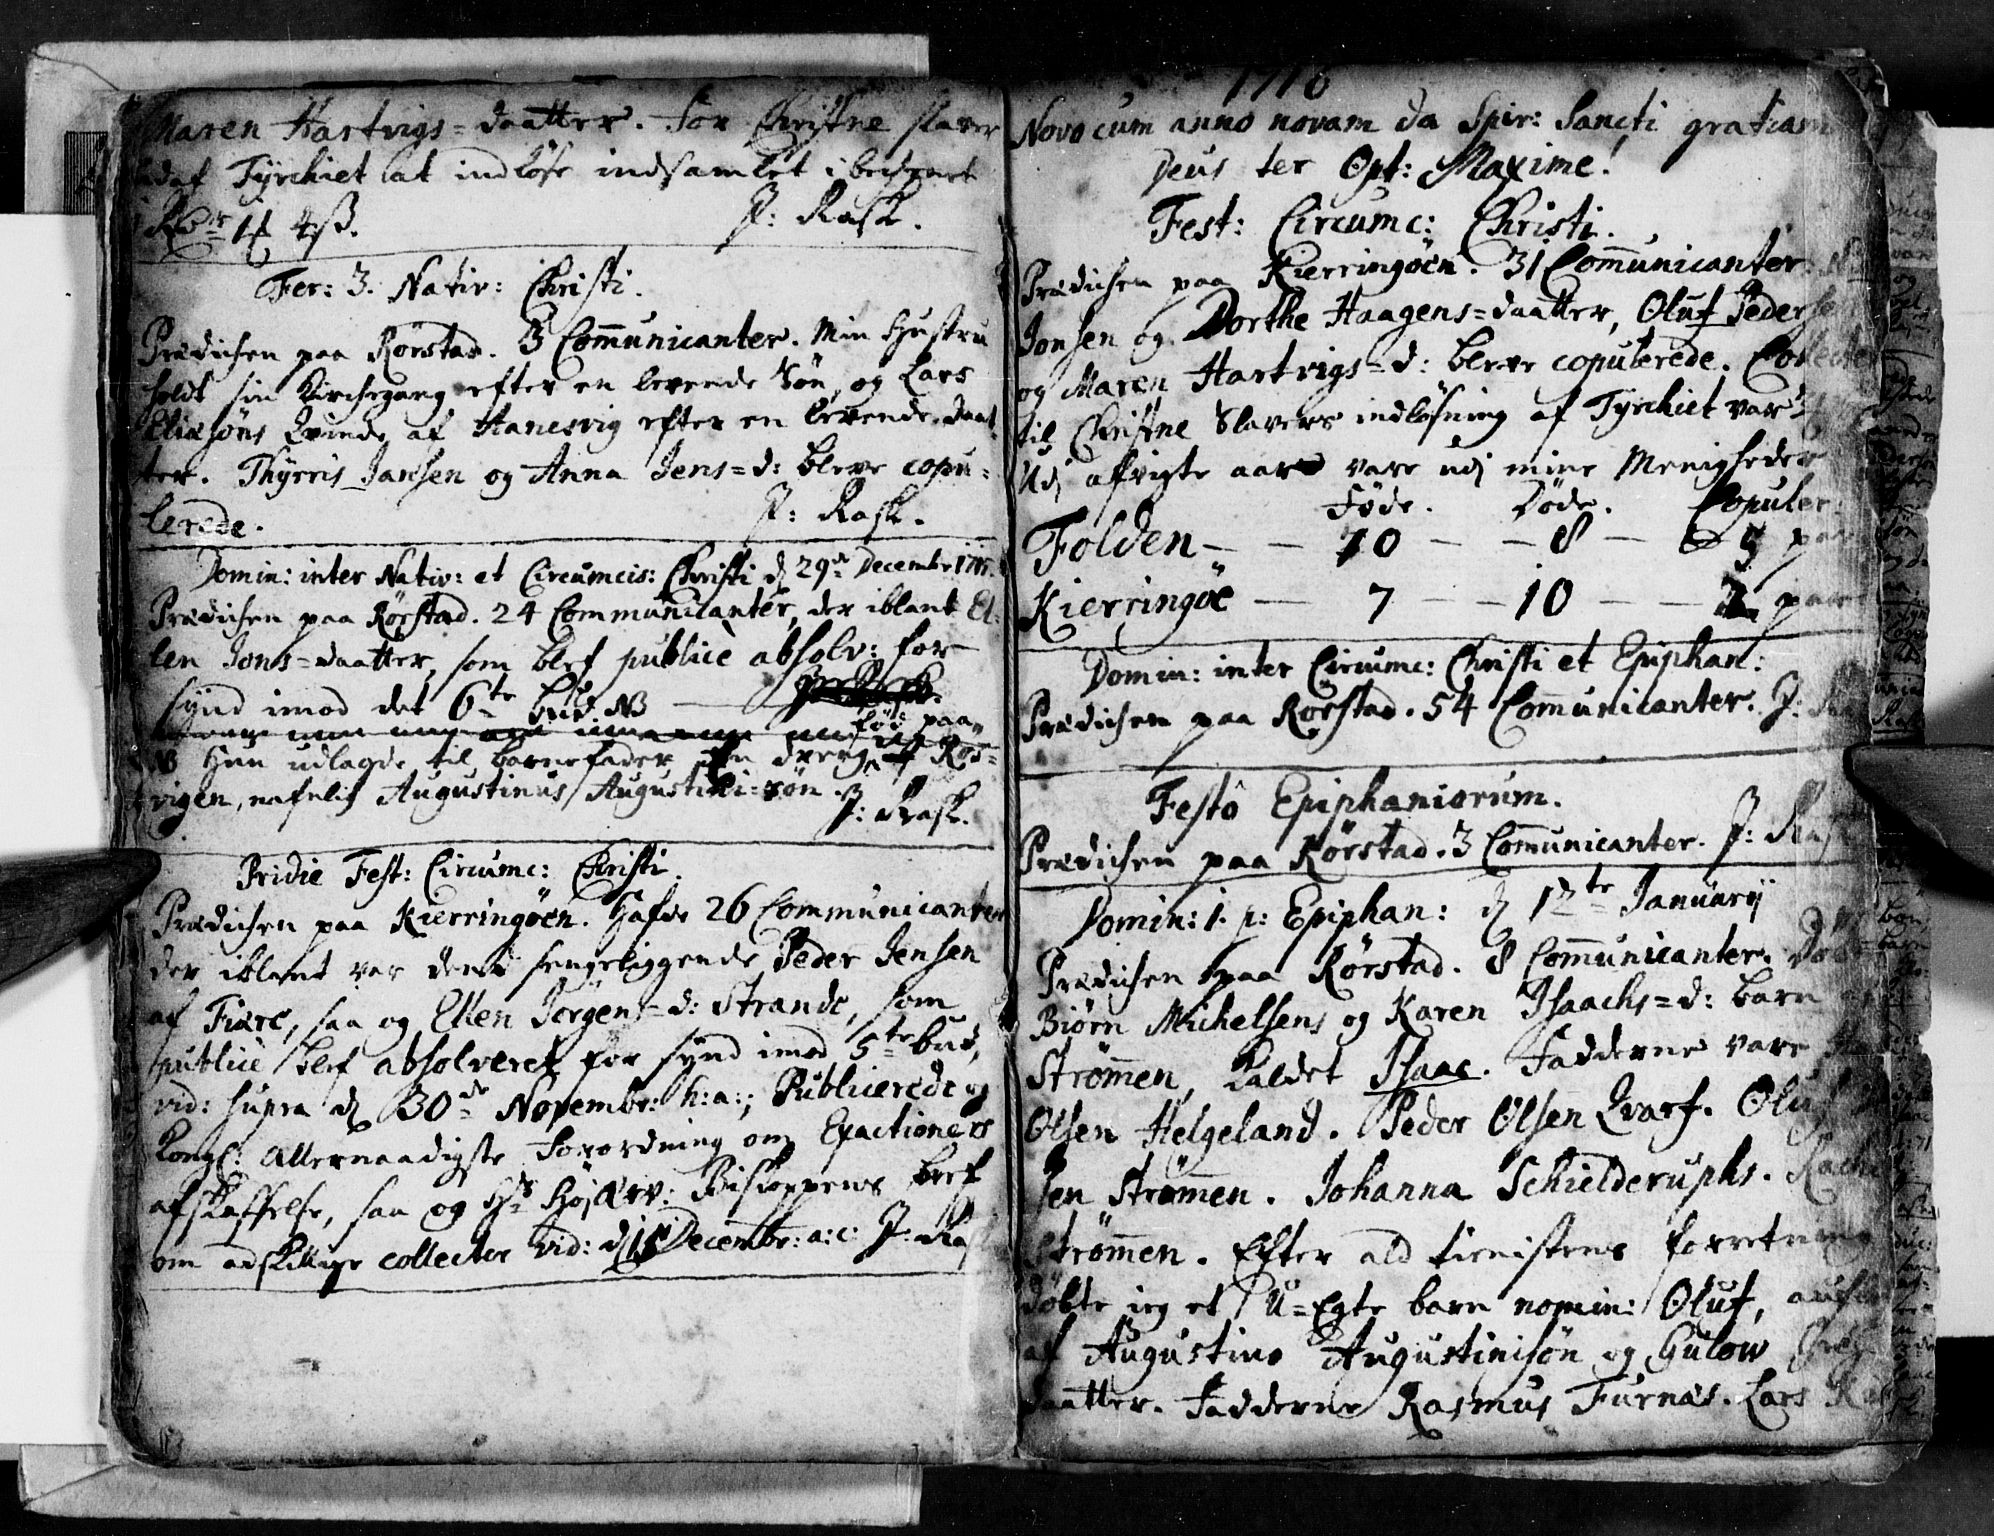 Maren Hartvigs=daatter. For Christne slaver
udaf Tyrchiet at indløse indsamlet i beckenet
4 ß. P: Rask.
Fer: 3. Nativ: Christi.
Prædichen paa Rørstad. 3 Com̄unicanter. Min Hustru
holdt sin Kirchegang efter en levende Søn, og Lars
Eliæsøns Qvinde af Hanesvig efter en levende daat
ter. Thÿrris Jansen og Anna Jens=d: bleve copu=
lerede. P: Rask.
Domin: inter Nativ: et Circumcis: Christi d 29de Decembr 1715.
Prædichen paa Rørstad. 24 Communicanter, der iblant El=
len Jons=daatter, som blef publicè absolv: for
synd imod det 6te bud NB
føð: paa
NB Hun udlagde til barnefader en dreng af Røs=
vigen, nafnlig Augustinus Augustini=søn. P: Rask.
Pridie Fest: Circumc: Christi.
Prædichen paa Kierringøen. Hafde 26 Communicanter
der iblant var den sengeliggende Peder Jensen
af Fiære, saa og Ellen Jørgens=d: Strande, som
publicè blef absolveret for synd imod 5te bud,
vid: supra d 30de Novembr: h:a:; Publicerede og
Kongl: Allernaadigste Forordning om Exactioners
afskaffelse, saa og Hr Højærv: Biskoppens bref
om adskillige collecter vid: d 15 Decembr: a:c: P: Rask
1716
Novo cum anno novam da Spir: Sancti gratiam
Deus ter Opt: Maxime!
Fest: Circumc: Christi.
Prædichen paa Kierringøen. 31 Com̄unicanter.
Jonsen og Dorthe Haagens=daatter, Oluf Peders
og Maren Hartvigs=d: bleve copulerede. Collecten
til Christne Slavers indløsning af Tyrchiet var
Udj afvigte aar vare udj mine Menigheder
Føde. Døde. Copuler:
Folden — — 10 — — 8 — 5 par
Kierringøe — 7 — — 10 — — 2 paar
Domin: inter Circumc: Christi et Epiphan:
Prædichen paa Rørstad. 54 Com̄unicanter. P: Rask
Festo Epiphaniorum.
Prædichen paa Rørstad. 3 Com̄unicanter. P: Rask
Domin: 1. p: Epiphan: d 12te Januarij
Prædichen paa Rørstad. 8 Com̄unicanter. Døbt
Biørn Michelsens og Karen Isaachs=d: barn
Strøm̄en, kaldet Isaac. Fadderne vare
Olsen Helgeland. Peder Olsen Qvarf. Oluf
sen Strøm̄en. Johanna Schielderuphs. Rachel
Strøm̄en. Efter ald tienistens forretning
døbte ieg et U=Egte barn nomin: Oluf,
af Augustino Augustinisøn og Gulow
daatter. Fadderne Rasmus Furnæs. Lars